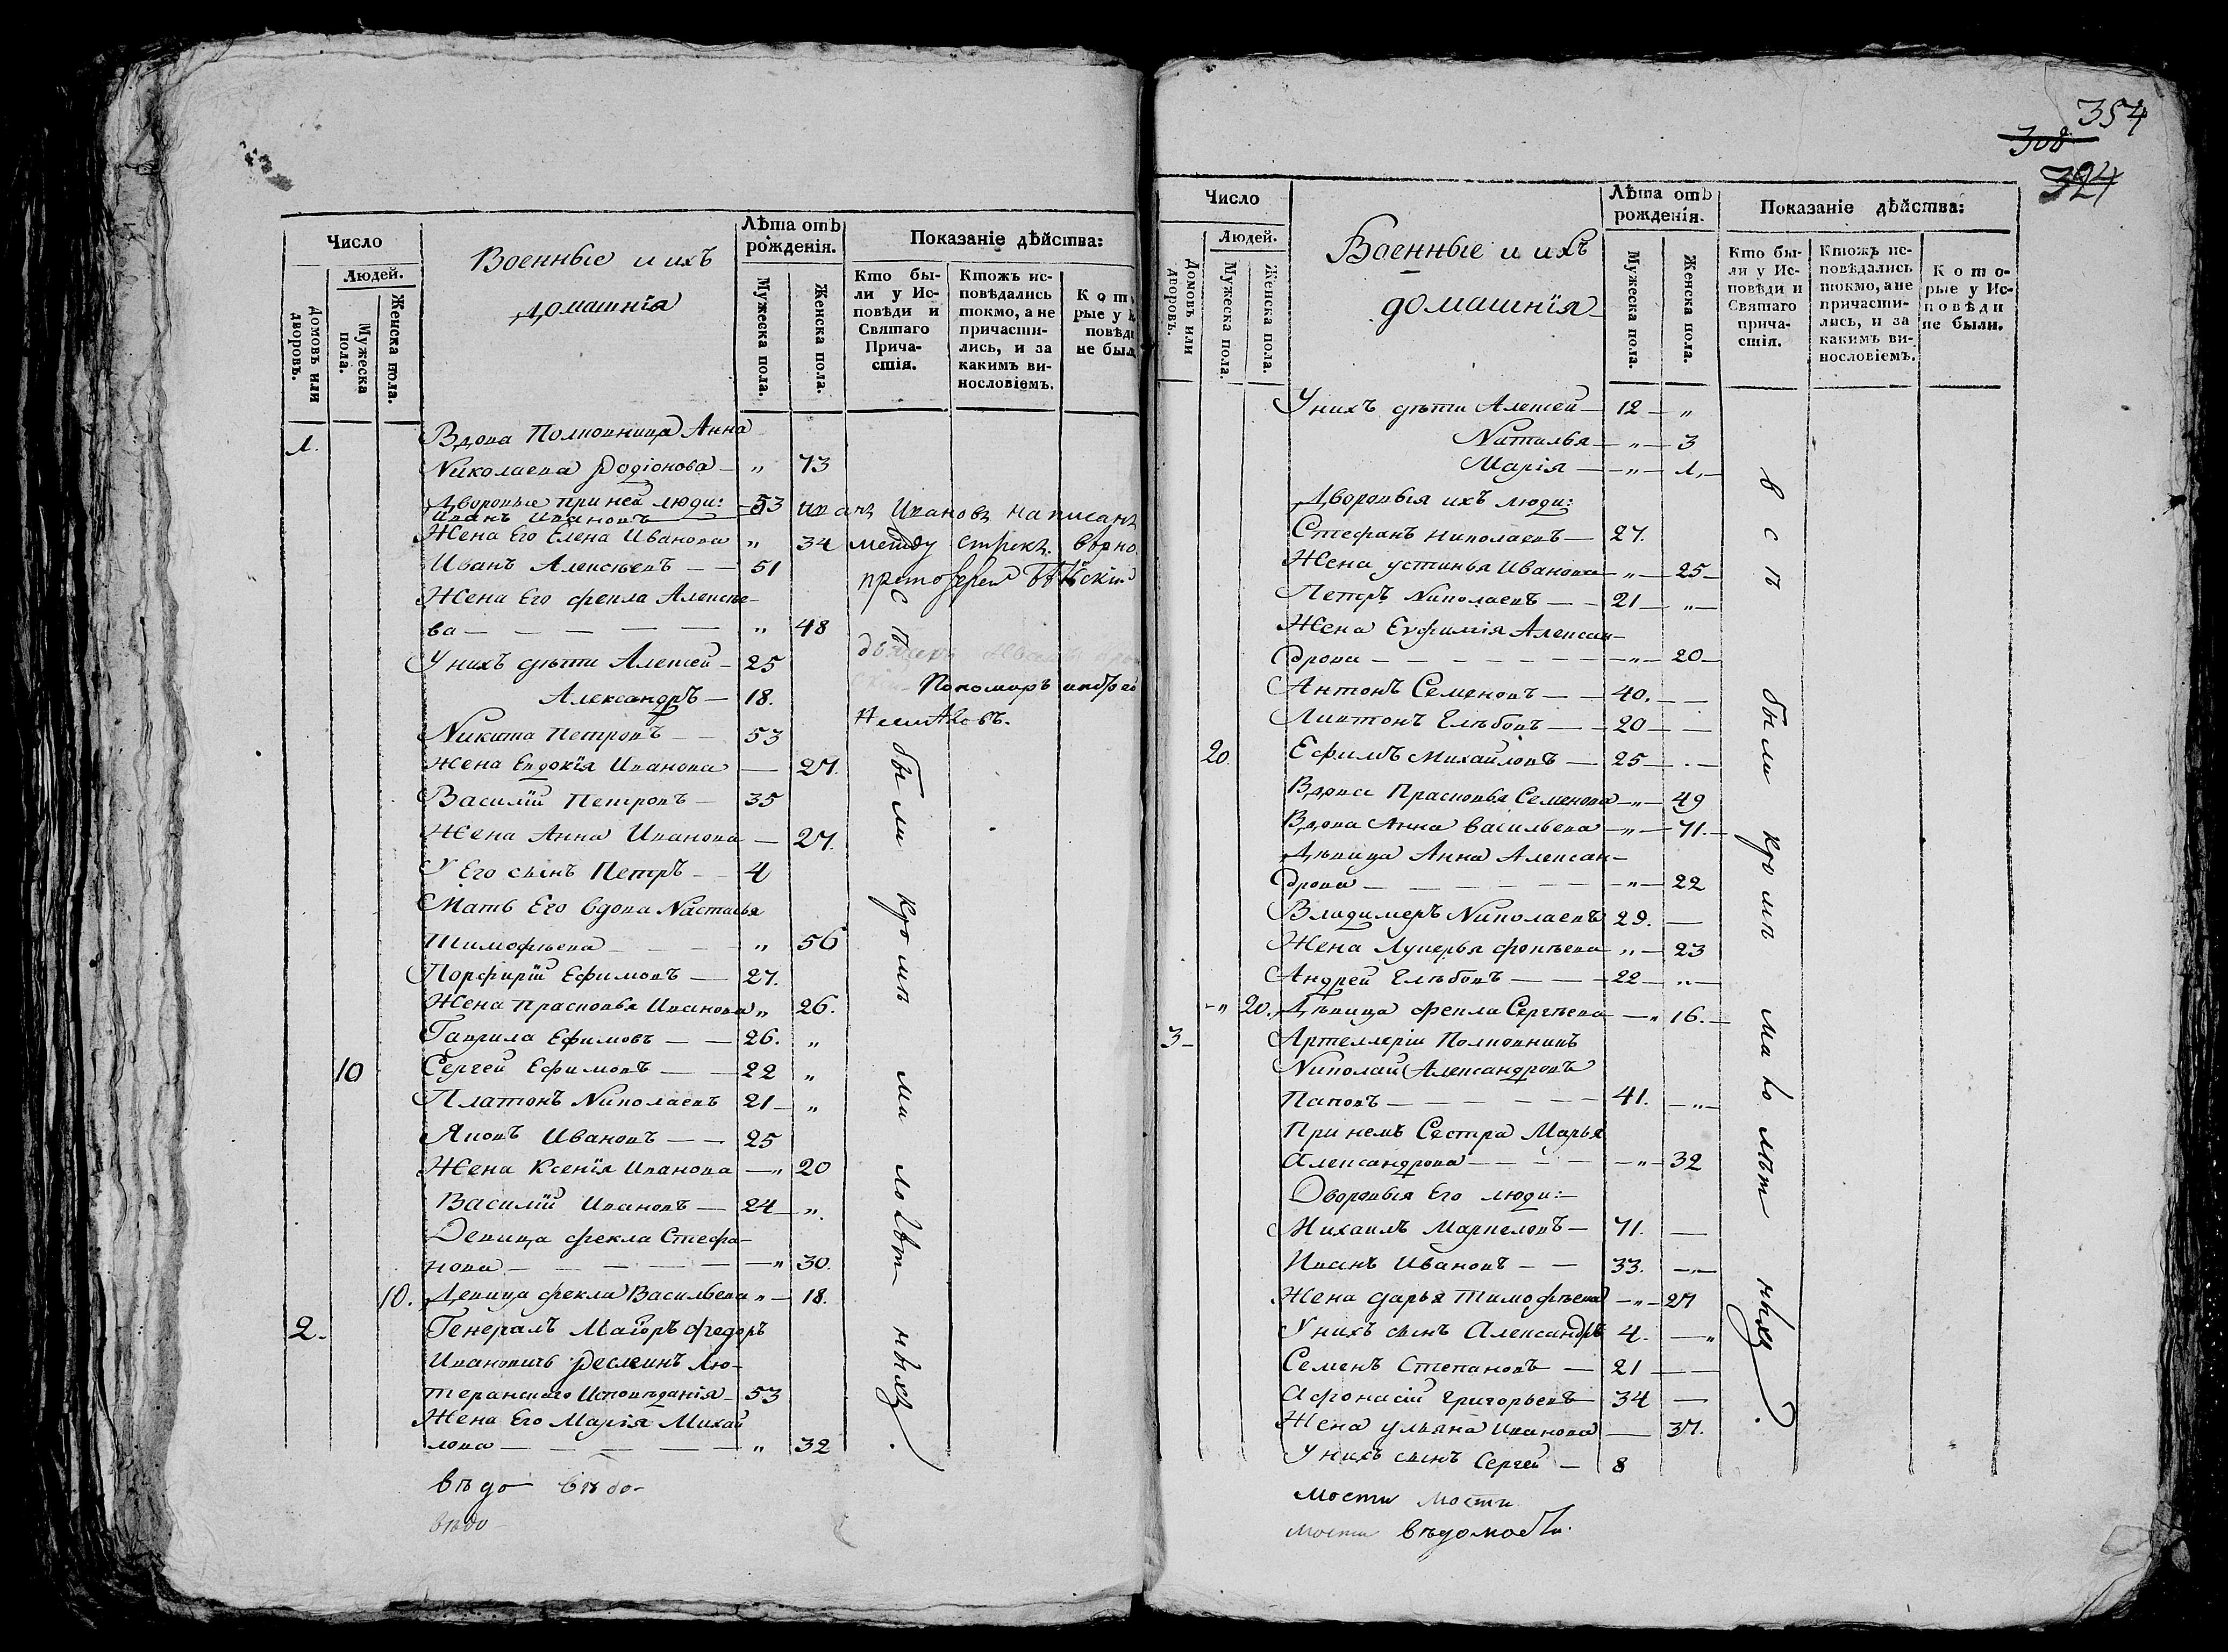 354
308
324
Число
Людей.
Домовъ или дворовъ.
Мужеска пола.
Женска пола.
Военные и ихъ
домашнія
Лѣта отъ
рожденія.
Мужеска пола.
Женска пола.
Показаніе дѣйства:
Кто бы-
ли у Ис-
повѣди и
Святаго
Прича-
стія.
Ктожъ ис-
повѣдались
токмо, а не
причасти-
лись, и за
какимъ ви-
нословіемъ.
Кот
рые у
повѣд
не был
1. Вдова Полковница Анна
Николаева Родіонова — „ 73
Дворовые при ней люди:
Иванъ Ивановъ — 53 Иванъ Ивановъ написанъ
Жена Его Елена Иванова „ 34 между строкъ. вѣрно
Иванъ Алексѣевъ — — 51
Жена Его Фекла Алексѣе-
ва — — — — — „ 48
У нихъ дѣти Алексей — 25
Александръ — 18. Пономарь Андрей
Никита Петровъ — — 53
Жена Евдокія Иванова — 27.
Василій Петровъ — 35
Жена Анна Иванова — 27.
У Его сынъ Петръ — 4
Мать Его вдова Настасья
Тимофѣева — — „ 56
Порфирій Ефимовъ — 27.
Жена Прасковья Иванова „ 26.
Гаврила Ефимовъ — — 26. „
10 Сергей Ефимовъ — — 22 „
Платонъ Николаевъ 21 — „
Яковъ Ивановъ — — 25
Жена Ксенія Иванова — „ 20
Василій Ивановъ — 24 — „
Девица Фекла Стефа-
нова — — — — — „ 30.
10. Девица Фекла Васильева „ — 18.
2. Генералъ Маіоръ Федоръ
Ивановичь Реслеинъ Лю-
теранскаго Исповѣданія — 53
Жена Его Марія Михай
лова — — — — — „ 32
всѣ были кромѣ малолѣтнихъ.
вѣдо вѣдо-
вѣдо-
Число
Людей.
Домовъ или дворовъ.
Мужеска пола.
Женска пола.
Военные и ихъ
домашнія
Лѣта отъ
рожденія.
Мужеска пола.
Женска пола.
Показаніе дѣйства:
Кто бы-
ли у Ис-
повѣди и
Святаго
прича-
стія.
Ктожъ ис-
повѣдались
токмо, а не
причасти-
лись, и за
какимъ ви-
нословіемъ.
Кото-
рые у Ис-
повѣди
не были.
У нихъ дѣти Алексей — 12 — „
Наталья — „ — 3
Марія — „ — 1, —
Дворовыя ихъ люди:
Стефанъ Николаевъ — 27.
Жена Устинья Иванова — „ — 25 —
Петръ Николаевъ — — 21 — „ —
Жена Евфимія Алексан-
дрова — — — — — — „ — 20 —
Антонъ Семеновъ — — 40. — —
Ливтонъ Глѣбовъ — — 20 — —
20. Ефимъ Михайловъ — 25 — . —
Вдова Прасковья Семенова — „ — 49
Вдова Анна Васильева — „ — 71. —
Дѣвица Анна Алексан-
дрова — — — — — — „ — 22
Владимеръ Николаевъ 29. —
Жена Лукерья Фокѣева „ — 23
Андрей Глѣбовъ — — — 22 — „ —
— „ 20. Дѣвица Фекла Сергѣева — „ 16. —
3 — Артеллеріи Полковникъ
Николай Александровъ
Паповъ — — — — — 41. — „ —
При немъ Сестра Марья
Александрова — — — — „ — 32
Дворовыя Его люди: —
Михаилъ Маркеловъ — 71. —
Иванъ Ивановъ — — 33. — „ —
Жена Дарья Тимофѣева — „ — 27
У нихъ сынъ Александръ 4. — „
Семенъ Степановъ — 21 — —
Афонасій Григорьевъ 34 —
Жена Ульяна Иванова — 37.
У нихъ сынъ Сергей — 8
всѣ были кромѣ малолѣтнихъ.
мости мости
мости вѣдомости.